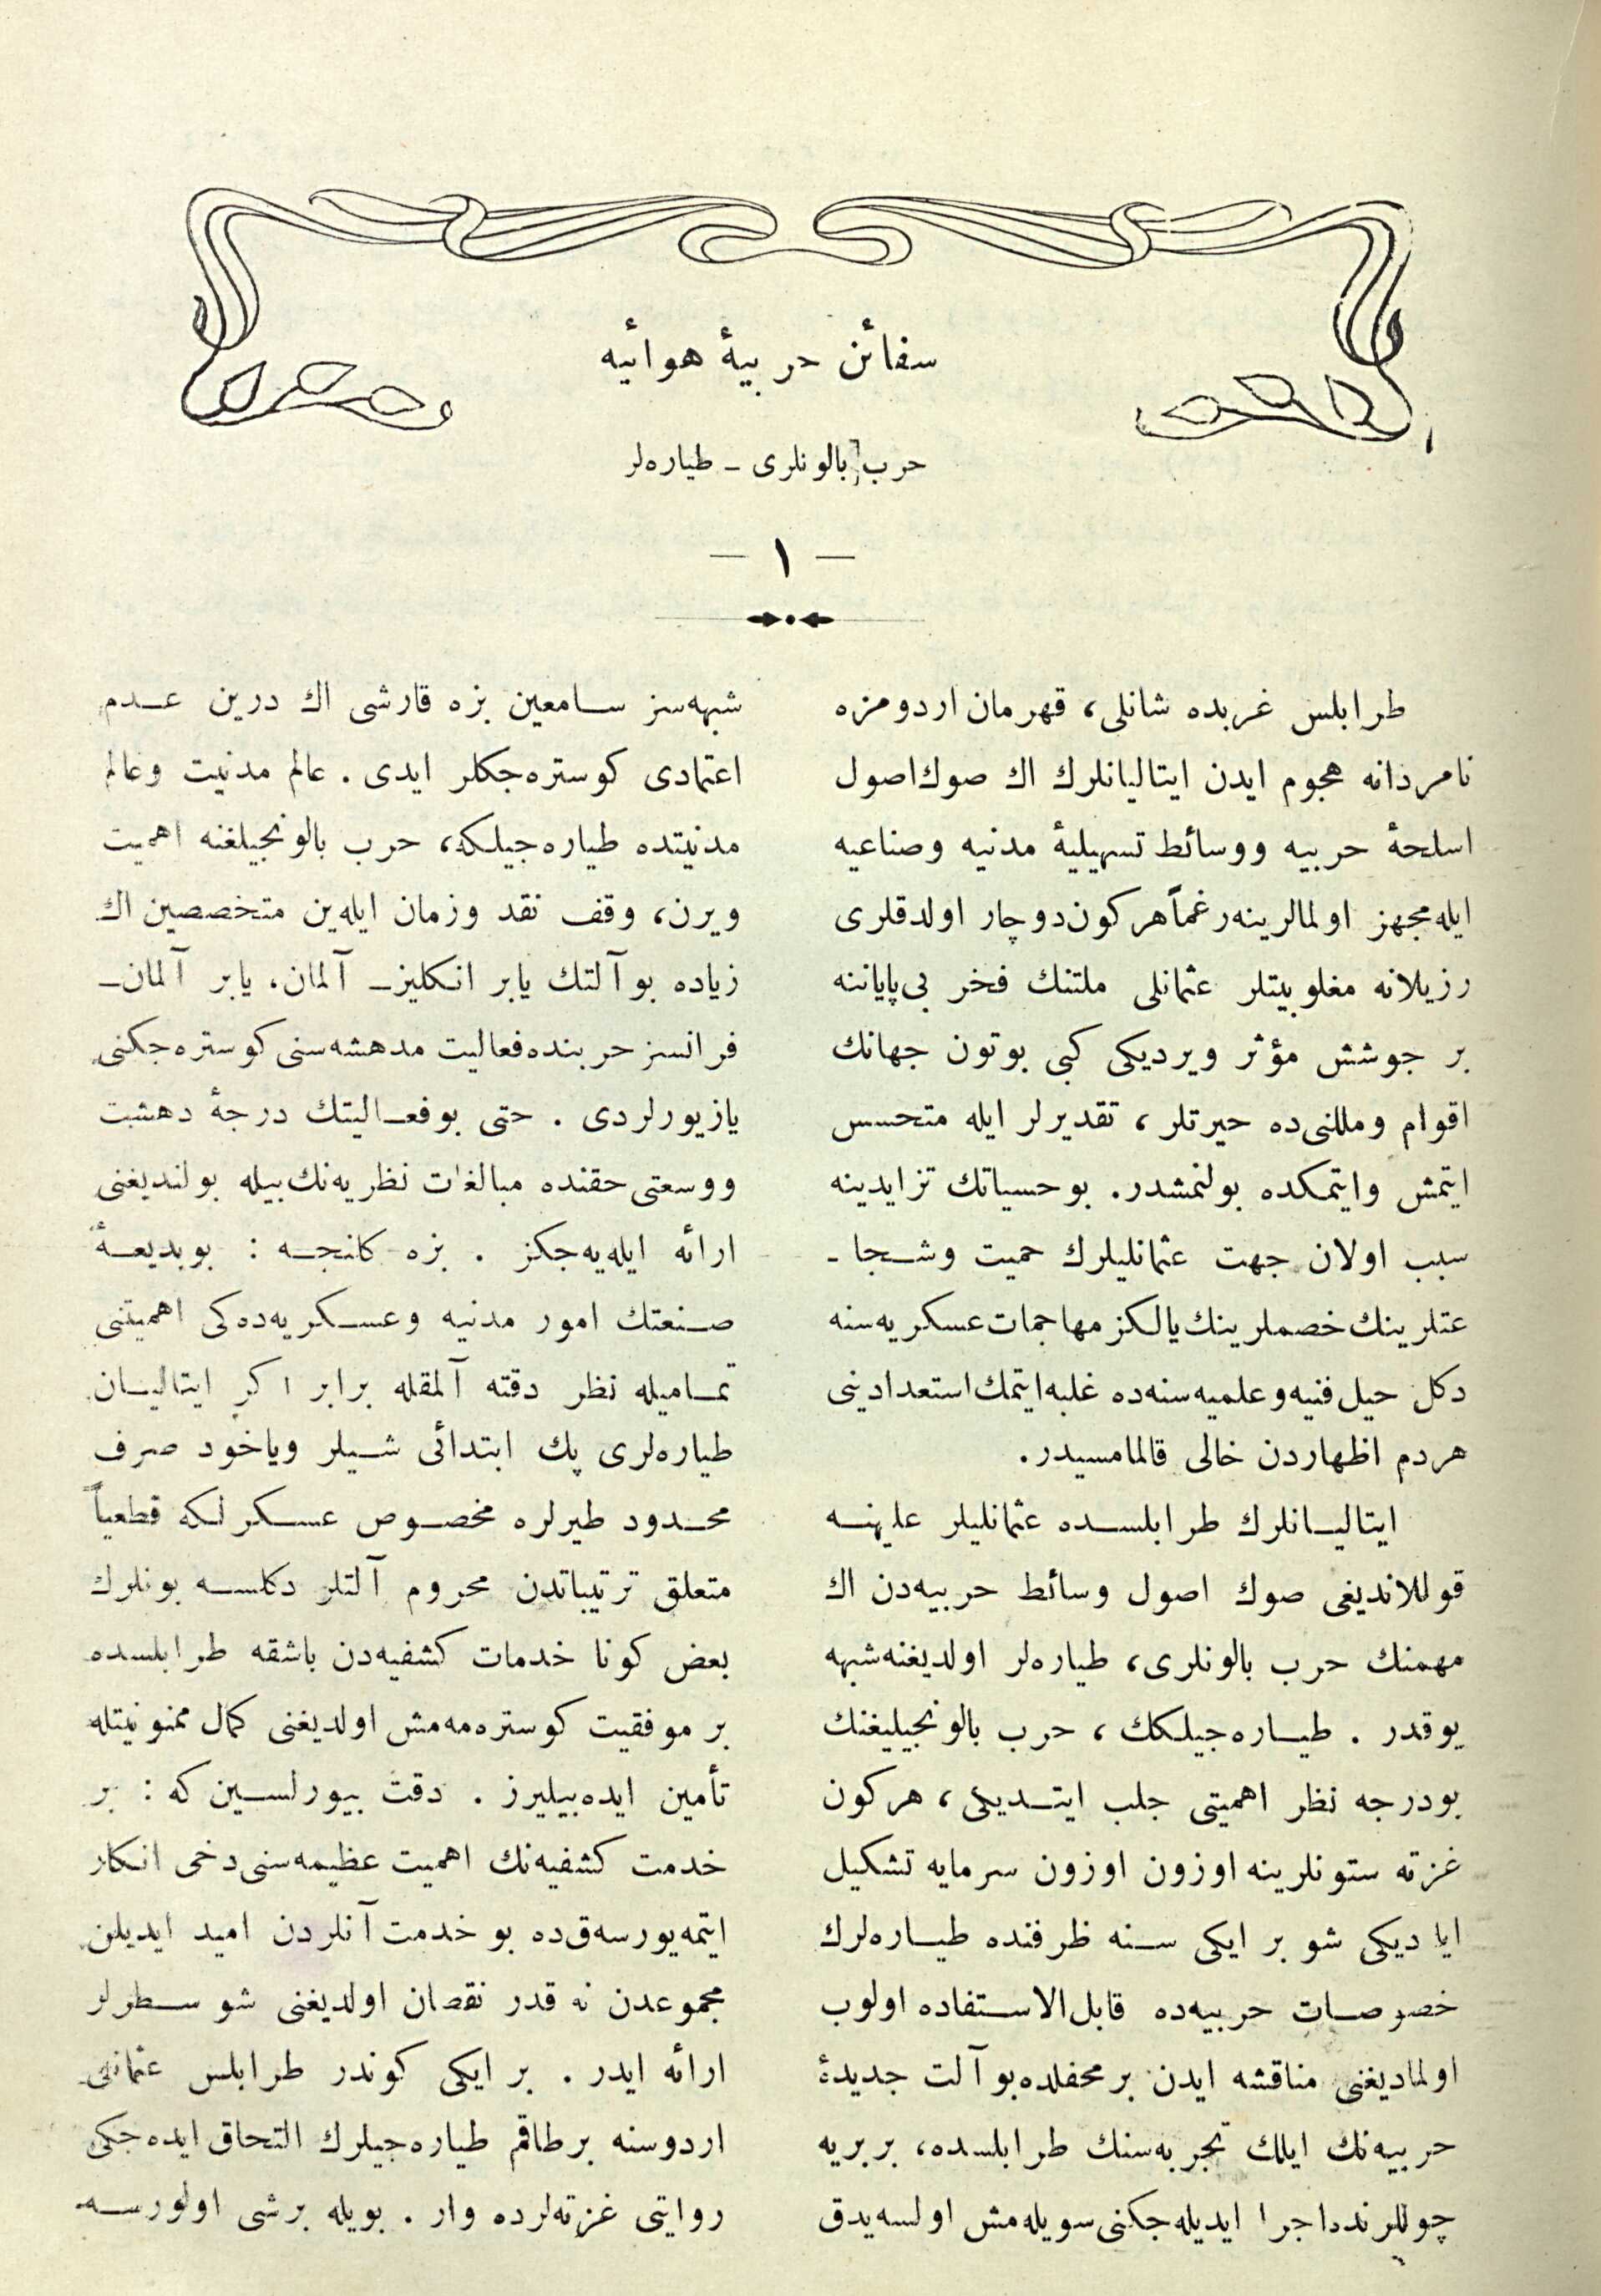 سفائن حربیهٔ هوائیه
حرب بالونلری ـ طیاره‌لر
— ١ —
طرابلس غربده شانلی، قهرمان اردومزه
نامردانه هجوم ایدن ایتالیانلرك اك صوك اصول
اسلحهٔ حربیه ووسائط تسهیلیهٔ مدنیه وصناعیه
ایله مجهز اولمالرینه رغماً هركون دوچار اولدقلری
رزیلانه مغلوبیتلر عثمانلی ملتنك فخر بی‌پایاننه
بر جوشش مؤثر ویردیكی كبی بوتون جهانك
اقوام ومللنی ده حیرتلر، تقدیرلر ایله متحسس
ایتمش وایتمكده بولنمشدر. بو حسیاتك تزایدینه
سبب اولان جهت عثمانلیلرك حمیت وشجا ـ
عتلرینك خصملرینك یالكز مهاجمات عسكریه‌سنه
دكل حیل فنیه وعلمیه‌سنه‌ده غلبه ایتمك استعدادینی
هردم اظهاردن خالی قالمامسیدر.
ایتالیانلرك طرابلسده عثمانلیلر علیهنه
قوللاندیغی صوك اصول وسائط حربیه‌دن اك
مهمنك حرب بالونلری، طیاره‌لر اولدیغنه شبهه
یوقدر. طیاره‌جیلكك، حرب بالونجیلیغنك
بودرجه نظر اهمیتی جلب ایتدیكی، هركون
غزته ستونلرینه اوزون اوزون سرمایه تشكیل
ایلدیكی شو بر ایكی سنه ظرفنده طیاره‌لرك
خصوصات حربیه‌ده قابل الاستفاده اولوب
اولمادیغنی مناقشه ایدن بر محفلده بو آلت جدیدهٔ
حربیه‌نك ایلك تجربه‌سنك طرابلسده، بربریه
چوللرنده اجرا ایدیله‌جكنی سویله‌مش اولسه‌یدق
شبهه‌سز سامعین بزه قارشی اك درین عدم
اعتمادی كوستره‌جكلر ایدی. عالم مدنیت وعالم
مدنیتده طیاره‌جیلكه، حرب بالونجیلغنه اهمیت
ویرن، وقف نقد وزمان ایله‌ین متخصصین اك
زیاده بو آلتك یا بر انكلیز ـ آلمان، یا بر آلمان ـ
فرانسز حربنده فعالیت مدهشه‌سنی كوستره‌جكنی
یازیورلردی. حتی بو فعالیتك درجهٔ دهشت
ووسعتی حقنده مبالغات نظریه‌نك بیله بولندیغنی
ارائه ایله‌یه‌جكز. بزه كلنجه: بو بدیعهٔ
صنعتك امور مدنیه وعسكریه‌ده‌كی اهمیتنی
تمامیله نظر دقته آلمقله برابر اكر ایتالیان
طیاره‌لری پك ابتدائی شیلر ویاخود صرف
محدود طیرلره مخصوص عسكرلكه قطعیاً
متعلق ترتیباتدن محروم آلتلر دكلسه بونلرك
بعض كونا خدمات كشفیه‌دن باشقه طرابلسده
بر موفقیت كوستره‌مه‌مش اولدیغنی كمال ممنونیتله
تأمین ایده‌بیلیرز. دقت بیورلسین كه: بر
خدمت كشفیه‌نك اهمیت عظیمه‌سنی دخی انكار
ایتمه‌یورسه‌ق‌ده بو خدمت آنلردن امید ایدیلن
مجموعدن نه قدر نقصان اولدیغنی شو سطرلر
ارائه ایدر. بر ایكی كوندر طرابلس عثمانلی
اردوسنه برطاقم طیاره‌جیلرك التحاق ایده‌جكی
روایتی غزته‌لرده وار. بویله برشی اولورسه